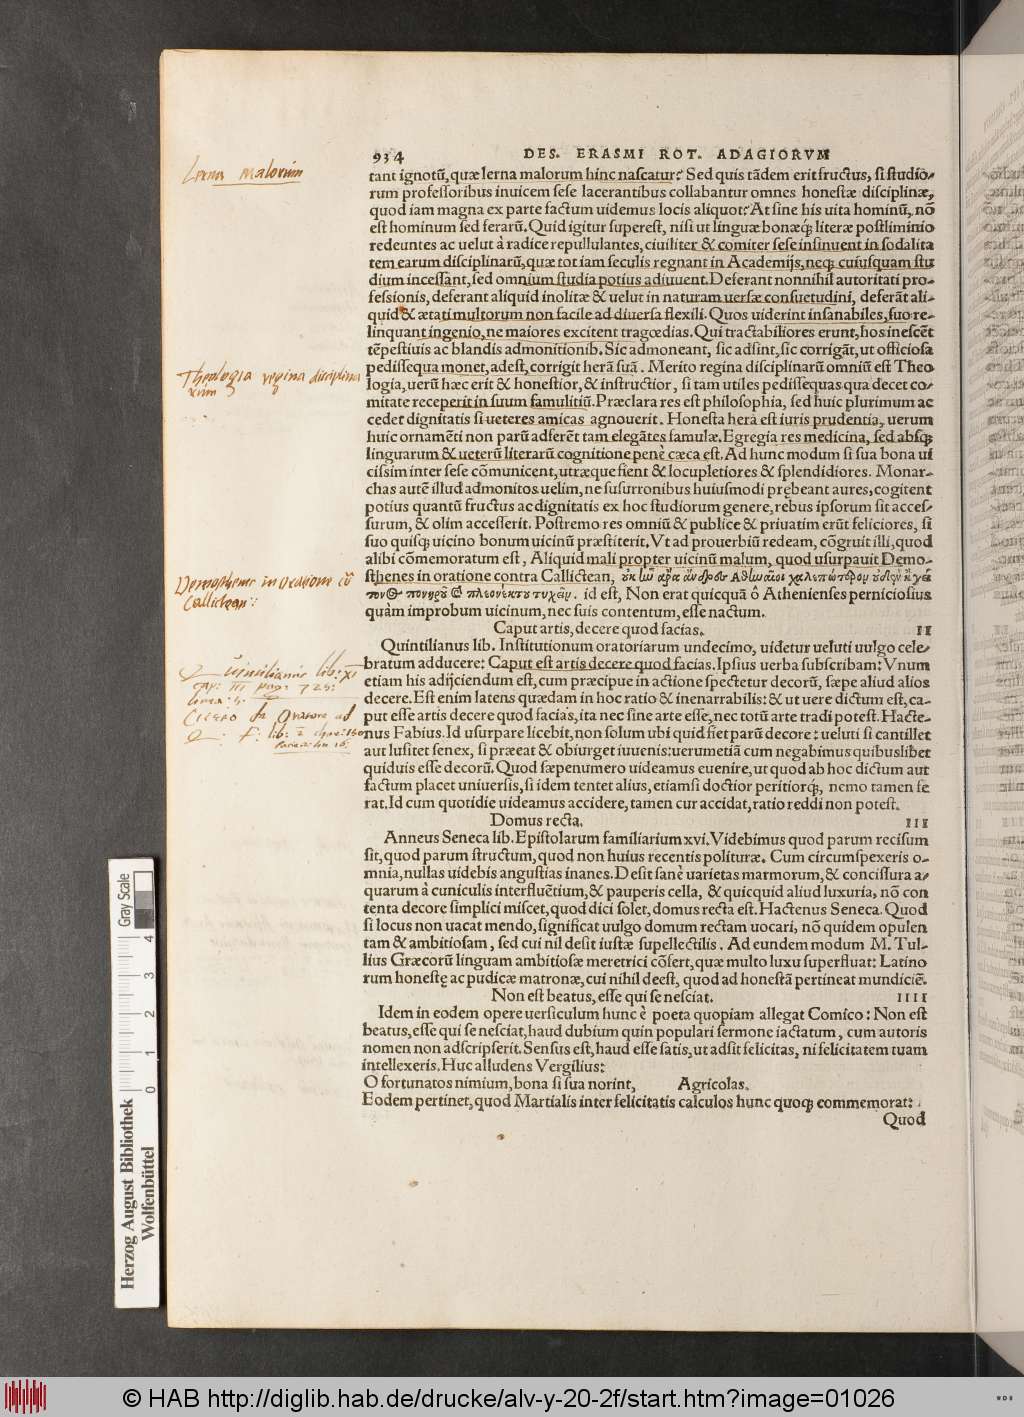 934 DES. ERASMI ROT. ADAGIORVM
Lerna malorum
tant ignotũ, quæ lerna malorum hinc nascatur? Sed quis tãdem erit fructus, si studio-
rum professoribus inuicem sese lacerantibus collabantur omnes honestæ disciplinæ,
quod iam magna ex parte factum uidemus locis aliquot? At sine his uita hominũ, nõ
est hominum sed ferarũ. Quid igitur superest, nisi ut linguæ bonæq́; literæ postliminio
redeuntes ac uelut à radice repullulantes, ciuiliter & comiter sese insinuent in sodalita
tem earum disciplinarũ, quæ tot iam seculis regnant in Academijs, neq; cuiusquam stu
dium incessant, sed omnium studia potius adiuuent. Deferant nonnihil autoritati pro-
fessionis, deferant aliquid inolitæ & uelut in naturam uersæ consuetudini, deferãt ali-
quid & ætati multorum non facile ad diuersa flexili. Quos uiderint insanabiles, suo re-
linquant ingenio, ne maiores excitent tragœdias. Qui tractabiliores erunt, hos inescẽt
tẽpestiuis ac blandis admonitionib. Sic admoneant, sic adsint, sic corrigãt, ut officiosa
pedissequa monet, adest, corrigit herã suã. Merito regina disciplinarũ omniũ est Theo
Theologia regina disciplina
rum
logia, uerũ hæc erit & honestior, & instructior, si tam utiles pedissequas qua decet co-
mitate receperit in suum famulitiũ. Præclara res est philosophia, sed huic plurimum ac
cedet dignitatis si ueteres amicas agnouerit. Honesta hera est iuris prudentia, uerum
huic ornamẽti non parũ adferẽt tam elegãtes famulæ. Egregia res medicina, sed absq;
linguarum & ueterũ literarũ cognitione penè cæca est. Ad hunc modum si sua bona ui
cissim inter sese cõmunicent, utræque fient & locupletiores & splendidiores. Monar-
chas autẽ illud admonitos uelim, ne susurronibus huiusmodi prębeant aures, cogitent
potius quantũ fructus ac dignitatis ex hoc studiorum genere, rebus ipsorum sit acces-
surum, & olim accesserit. Postremo res omniũ & publice & priuatim erũt feliciores, si
suo quisq; uicino bonum uicinũ præstiterit. Vt ad prouerbiũ redeam, cõgruit illi, quod
alibi cõmemoratum est, Aliquid mali propter uicinũ malum, quod usurpauit Demo-
Demosthenes in oratione cõ
Callictean:
sthenes in oratione contra Callictean, οὐκ ἦν ἄρα ἄνδρες Ἀθηναῖοι χαλεπώτερον οὐδὲν ἢ γεί
τονος πονηροῦ καὶ πλεονέκτου τυχεῖν. id est, Non erat quicquã ô Athenienses perniciosius
quàm improbum uicinum, nec suis contentum, esse nactum.
Caput artis, decere quod facias. II
Quintilianus lib. Institutionum oratoriarum undecimo, uidetur ueluti uulgo cele-
Quintilianus lib: xi
cap: III pag: 725:
linea: 5.
Cicero in Oratore ad
Q: F: lib:
bratum adducere: Caput est artis decere quod facias. Ipsius uerba subscribam: Vnum
etiam his adijciendum est, cum præcipue in actione spectetur decorũ, sæpe aliud alios
decere. Est enim latens quædam in hoc ratio & inenarrabilis: & ut uere dictum est, ca-
put esse artis decere quod facias, ita nec sine arte esse, nec totũ arte tradi potest. Hacte-
nus Fabius. Id usurpare licebit, non solum ubi quid fiet parũ decore: ueluti si cantillet
aut lusitet senex, si præeat & obiurget iuuenis: uerumetiã cum negabimus quibuslibet
quiduis esse decorũ. Quod sæpenumero uideamus euenire, ut quod ab hoc dictum aut
factum placet uniuersis, si idem tentet alius, etiamsi doctior peritiorq́;, nemo tamen fe
rat. Id cum quotidie uideamus accidere, tamen cur accidat, ratio reddi non potest.
Domus recta. III
Anneus Seneca lib. Epistolarum familiarium xvi. Videbimus quod parum recisum
sit, quod parum structum, quod non huius recentis politurę. Cum circumspexeris o-
mnia, nullas uidebis angustias inanes. Desit sanè uarietas marmorum, & concissura a-
quarum à cuniculis interfluẽtium, & pauperis cella, & quicquid aliud luxuria, nõ con
tenta decore simplici miscet, quod dici solet, domus recta est. Hactenus Seneca. Quod
si locus non uacat mendo, significat uulgo domum rectam uocari, nõ quidem opulen
tam & ambitiosam, sed cui nil desit iustæ supellectilis. Ad eundem modum M. Tul-
lius Græcorũ linguam ambitiosæ meretrici cõfert, quæ multo luxu superfluat: Latino
rum honestę ac pudicæ matronæ, cui nihil deest, quod ad honestã pertineat mundiciẽ.
Non est beatus, esse qui se nesciat. IIII
Idem in eodem opere uersiculum hunc è poeta quopiam allegat Comico: Non est
beatus, esse qui se nesciat, haud dubium quin populari sermone iactatum, cum autoris
nomen non adscripserit. Sensus est, haud esse satis, ut adsit felicitas, ni felicitatem tuam
intellexeris. Huc alludens Vergilius:
O fortunatos nimium, bona si sua norint, Agricolas.
Eodem pertinet, quod Martialis inter felicitatis calculos hunc quoq; commemorat:
Quod
Gray Scale
0 1 2 3 4
Herzog August Bibliothek
Wolfenbüttel
© HAB http://diglib.hab.de/drucke/alv-y-20-2f/start.htm?image=01026